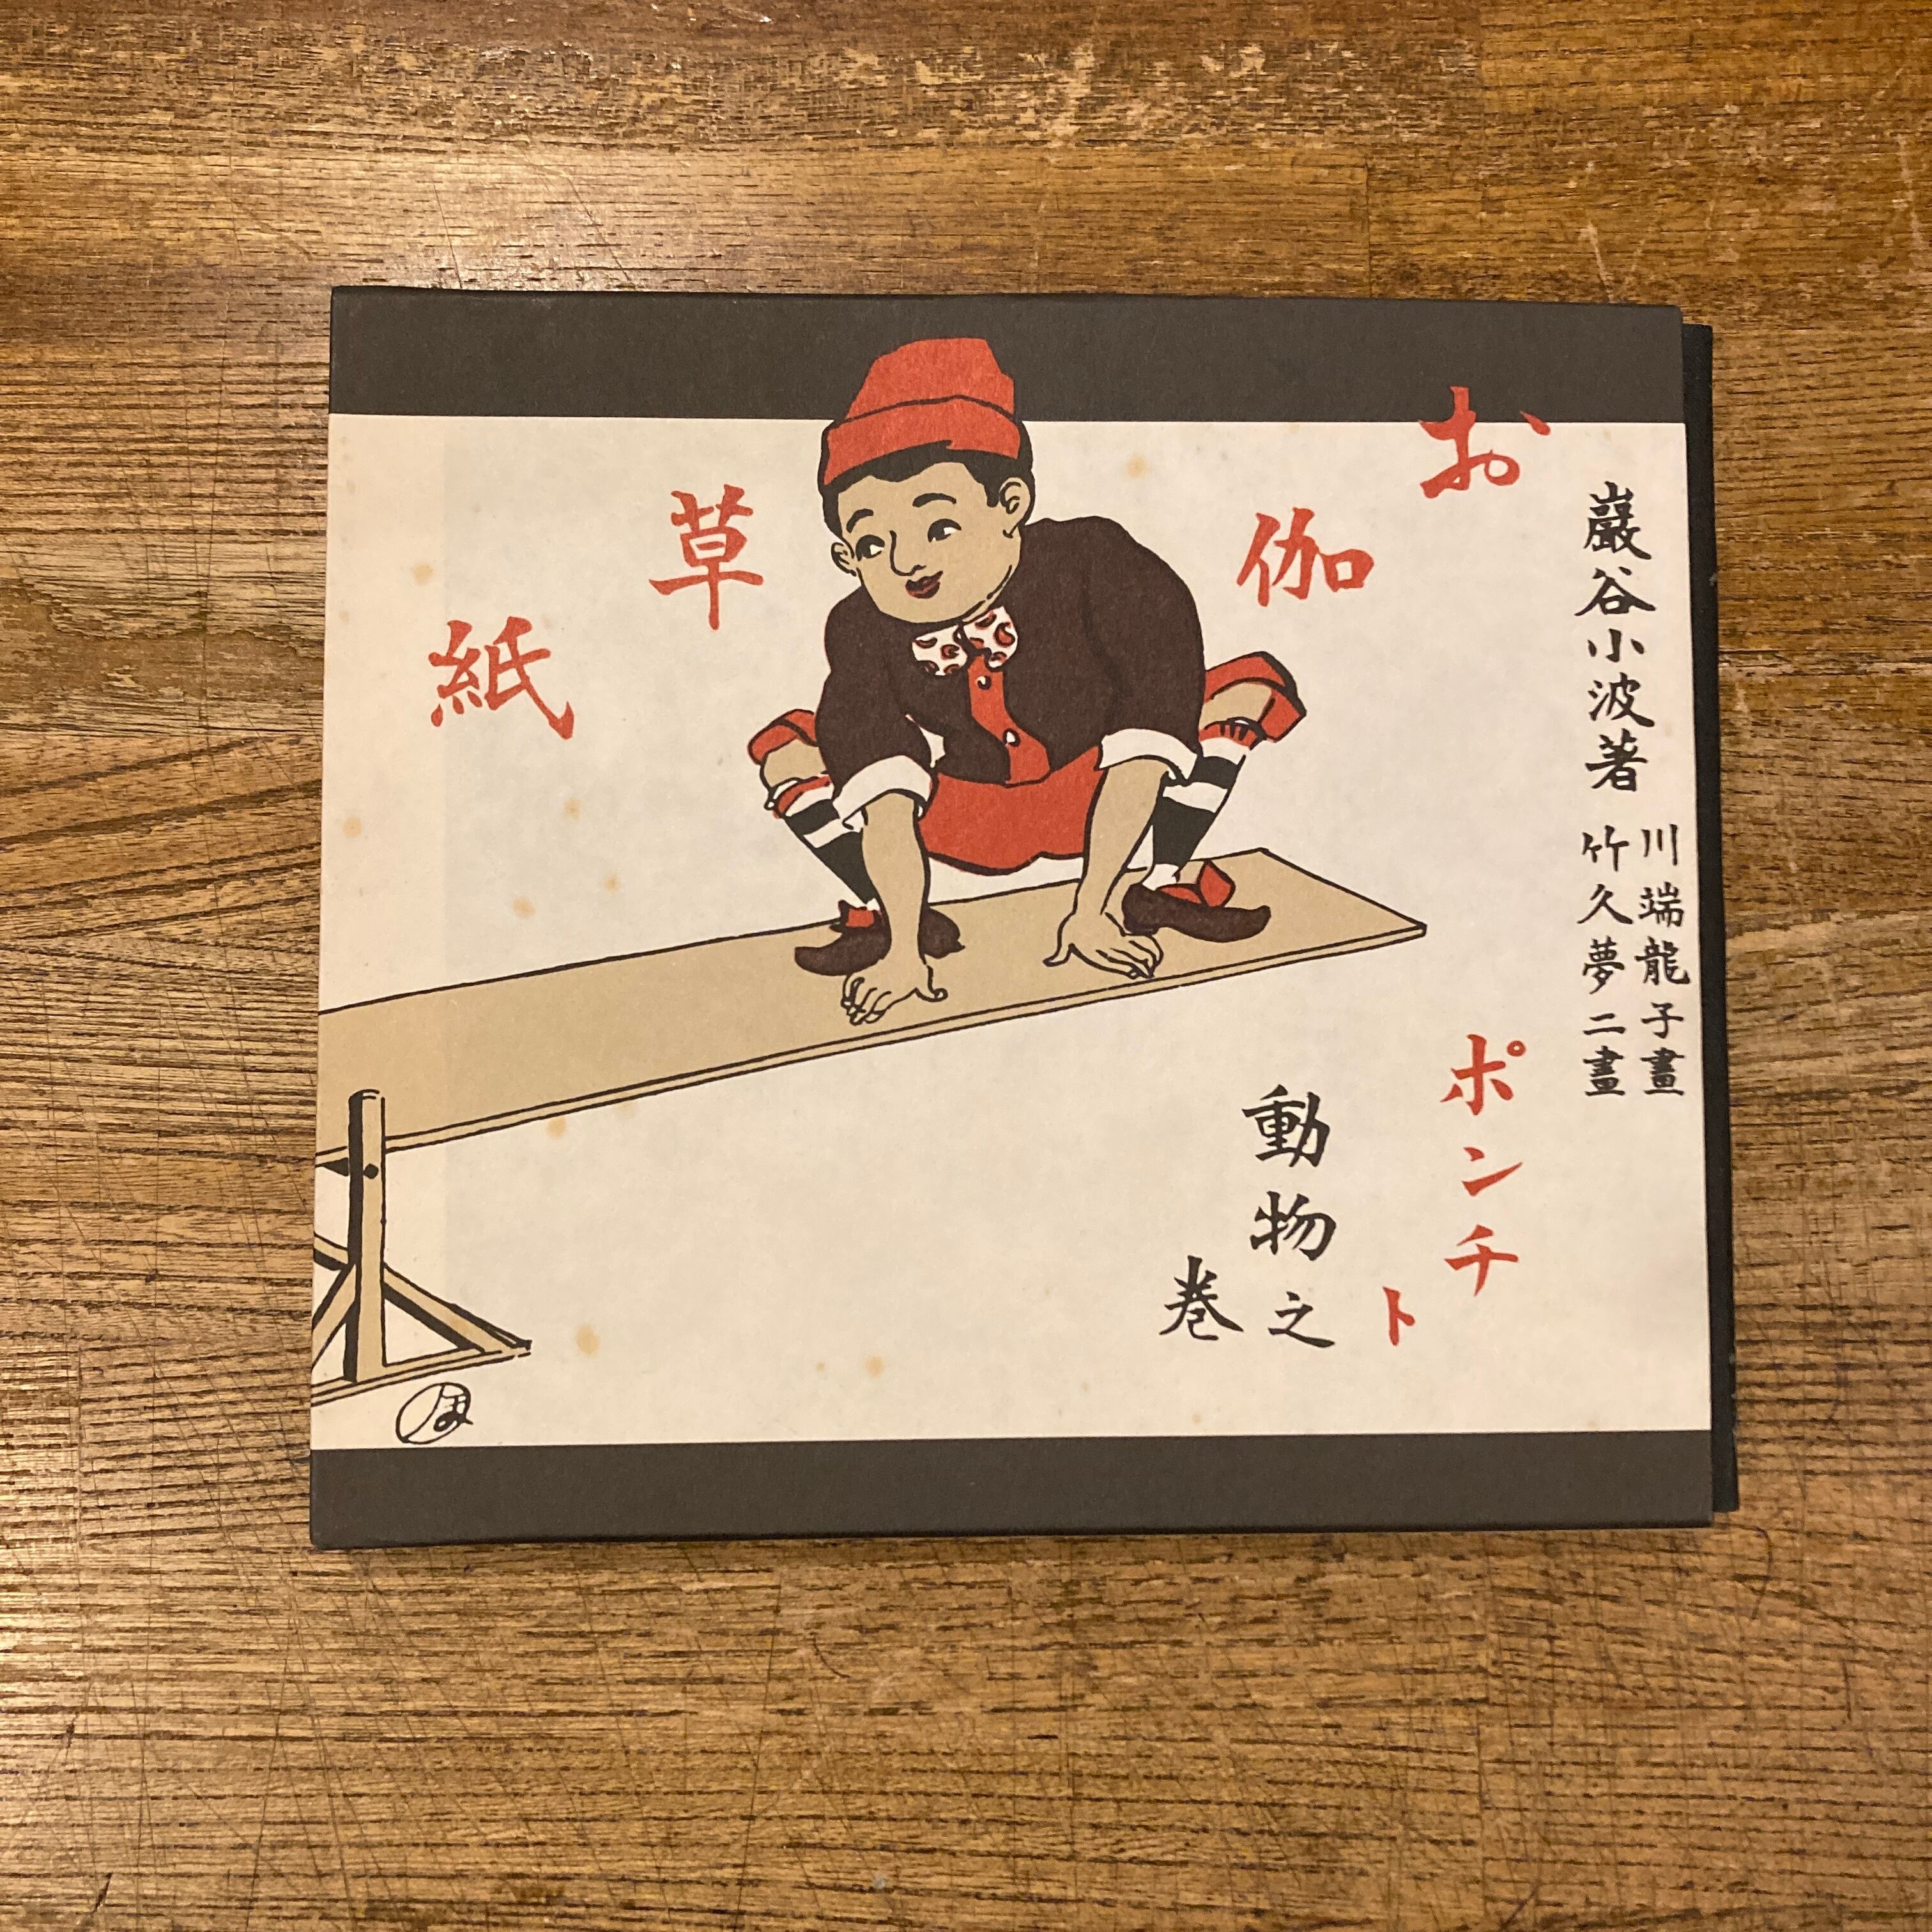 巖谷小波著
川端龍子畫
竹久夢二畫
お伽草紙
ポンチト
動物之巻